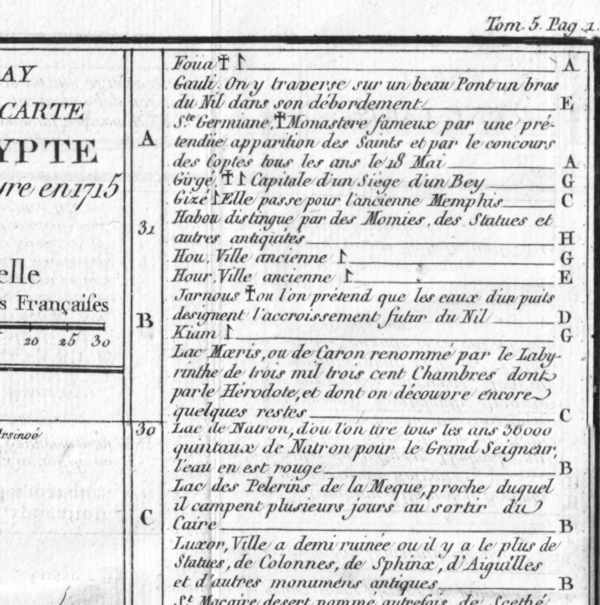 Tom. 5. Pag. 1.
AY
CARTE
YPTE
vre en 1715
elle
s Françaises
20 25 30
Arsinoé
A
31
B
30
C
Foüa ✝ A
Gauli. On y traverse sur un beau Pont un bras
du Nil dans son débordement E
Ste Germiane, ✝ Monastere fameux par une pré-
tendüe apparition des Saints et par le concours
des Coptes tous les ans le 18 Mai A
Girgé, ✝ Capitale d'un Siége d'un Bey G
Gizé Elle passe pour l'ancienne Memphis C
Habou distingué par des Momies, des Statues et
autres antiquités H
Hou. Ville ancienne G
Hour. Ville ancienne E
Jarnous ✝ ou l'on prétend que les eaux d'un puits
designent l'accroissement futur du Nil D
Kium G
Lac Mœris, ou de Caron renommé par le Laby-
rinthe de trois mil trois cent Chambres dont
parle Hérodote, et dont on découvre encore
quelques restes C
Lac de Natron, d'ou l'on tire tous les ans 36000
quintaux de Natron pour le Grand Seigneur,
l'eau en est rouge B
Lac des Pelerins de la Meque, proche duquel
il campent plusieurs jours au sortir du
Caire B
Luxor, Ville a demi ruinée ou il y a le plus de
Statues, de Colonnes, de Sphinx, d'Aiguilles
et d'autres monumens antiques B
St Macaire desert nommé autrefois de Scethé